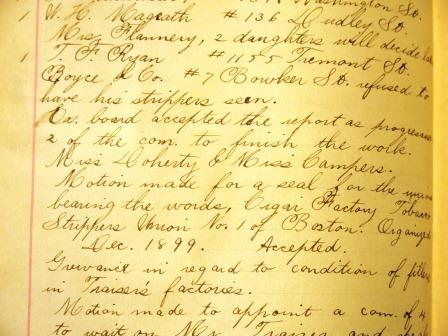 Washington St.
1 W. H. Magrath # 136 Dudley St.
Mrs. Flannery, 2 daughters will decide
1 T. F. Ryan # 1155 Tremont St.
Boyce & Co. # 7 Bowker St. refused to
have his strippers seen.
Ex. board accepted the report as progress
2 of the com. to finish the work.
Miss Doherty & Miss Campers.
Motion made for a seal for the union
bearing the words, Cigar Factory Tobacco
Strippers Union No. 1 of Boston. Organized
Dec. 1899. Accepted.
Grievance in regard to condition of fillers
in Traiser's factories.
Motion made to appoint a com. of 4
to wait on Mr. Traiser and